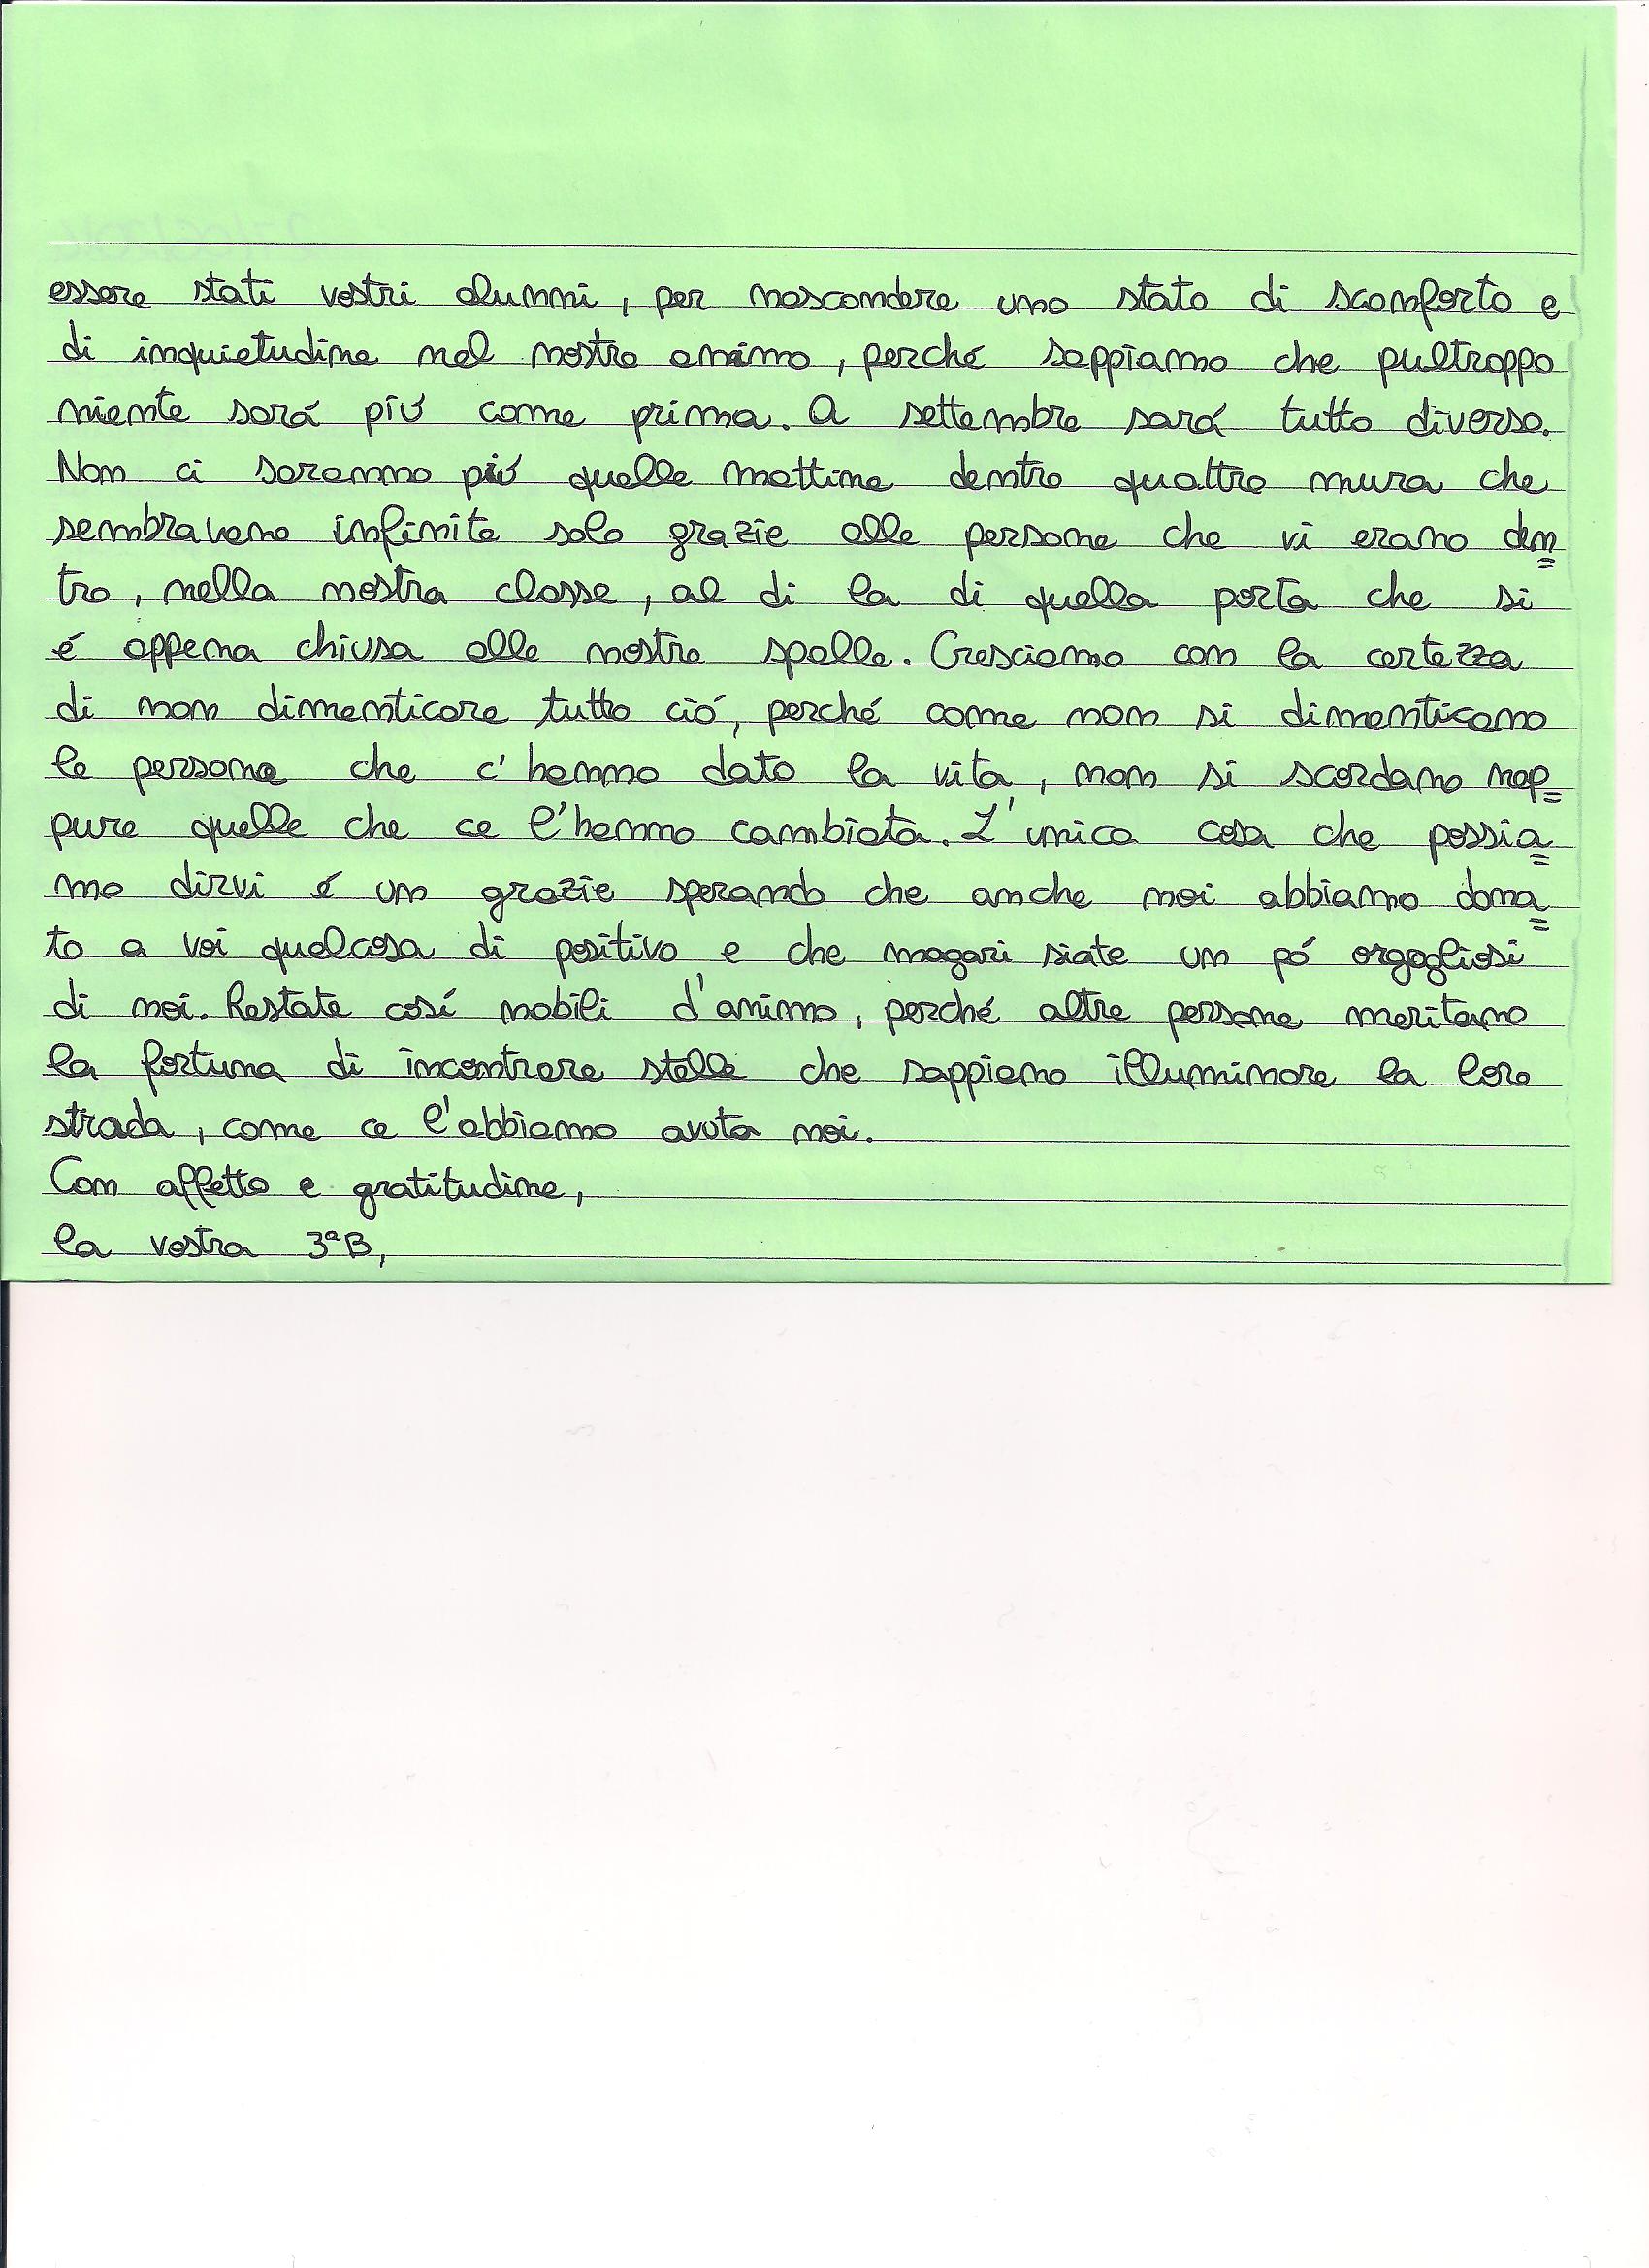 essere stati vostri alunni, per nascondere uno stato di sconforto e
di inquietudine nel nostro animo, perché sappiamo che pultroppo
niente sará piú come prima. A settembre sará tutto diverso.
Non ci saranno piú quelle mattine dentro quattro mura che
sembravano infinite solo grazie alle persone che vi erano den=
tro, nella nostra classe, al di la di quella porta che si
é appena chiusa alle nostre spalle. Cresciamo con la certezza
di non dimenticare tutto ció, perché come non si dimenticano
le persone che c'hanno dato la vita, non si scordano nep=
pure quelle che ce l'hanno cambiata. L'unica cosa che possia=
mo dirvi é un grazie sperando che anche noi abbiamo dona=
to a voi qualcosa di positivo e che magari siate un pó orgogliosi
di noi. Restate cosí nobili d'animo, perché altre persone meritano
la fortuna di incontrare stelle che sappiano illuminare la loro
strada, come ce l'abbiamo avuta noi.
Con affetto e gratitudine,
la vostra 3ªB,